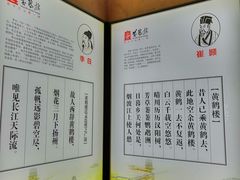 崔颢
黄鹤楼
昔人已乘黄鹤去，
此地空余黄鹤楼。
黄鹤一去不复返，
白云千载空悠悠。
晴川历历汉阳树，
芳草萋萋鹦鹉洲。
日暮乡关何处是，
烟波江上使人愁。
李白
故人西辞黄鹤楼，
烟花三月下扬州。
孤帆远影碧空尽，
唯见长江天际流。